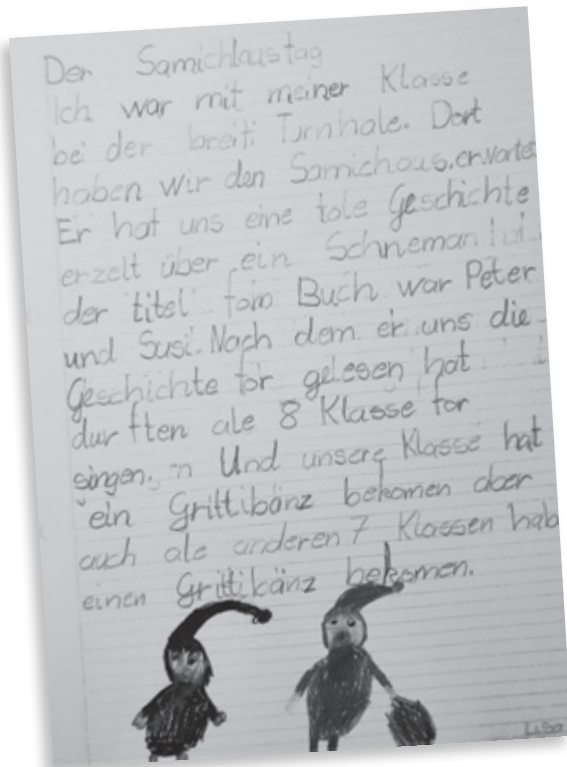 Der Samichlaustag
Ich war mit meiner Klasse
bei der breiti Turnhale. Dort
haben wir den Samichaus erwartet
Er hat uns eine tole Geschichte
erzelt über ein Schneman
der titel fom Buch war Peter
und Susi. Nach dem er uns die
Geschichte for gelesen hat
durften ale 8 Klasse for
singen. Und unsere Klasse hat
ein Grittibänz bekomen aber
auch ale anderen 7 Klassen hab
einen Grittibänz bekomen.
Lisa